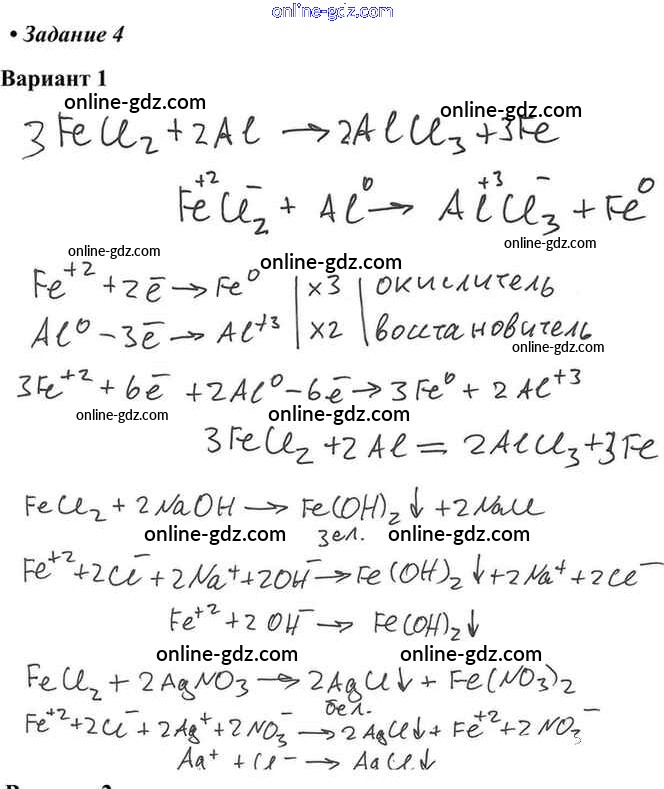 online-gdz.com
• Задание 4
Вариант 1
online-gdz.com online-gdz.com
3FeCl₂ + 2Al → 2AlCl₃ + 3Fe
Fe⁺²Cl₂⁻ + Al⁰ → Al⁺³Cl₃⁻ + Fe⁰
online-gdz.com online-gdz.com online-gdz.com
Fe⁺² + 2ē → Fe⁰ | ×3 | окислитель
Al⁰ − 3ē → Al⁺³ | ×2 | восстановитель
online-gdz.com
3Fe⁺² + 6ē + 2Al⁰ − 6ē → 3Fe⁰ + 2Al⁺³
online-gdz.com online-gdz.com
3FeCl₂ + 2Al = 2AlCl₃ + 3Fe
FeCl₂ + 2NaOH → Fe(OH)₂↓ + 2NaCl
online-gdz.com зел. online-gdz.com
Fe⁺² + 2Cl⁻ + 2Na⁺ + 2OH⁻ → Fe(OH)₂↓ + 2Na⁺ + 2Cl⁻
Fe⁺² + 2OH⁻ → Fe(OH)₂↓
online-gdz.com online-gdz.com
FeCl₂ + 2AgNO₃ → 2AgCl↓ + Fe(NO₃)₂
бел.
Fe⁺² + 2Cl⁻ + 2Ag⁺ + 2NO₃⁻ → 2AgCl↓ + Fe⁺² + 2NO₃⁻
Ag⁺ + Cl⁻ → AgCl↓